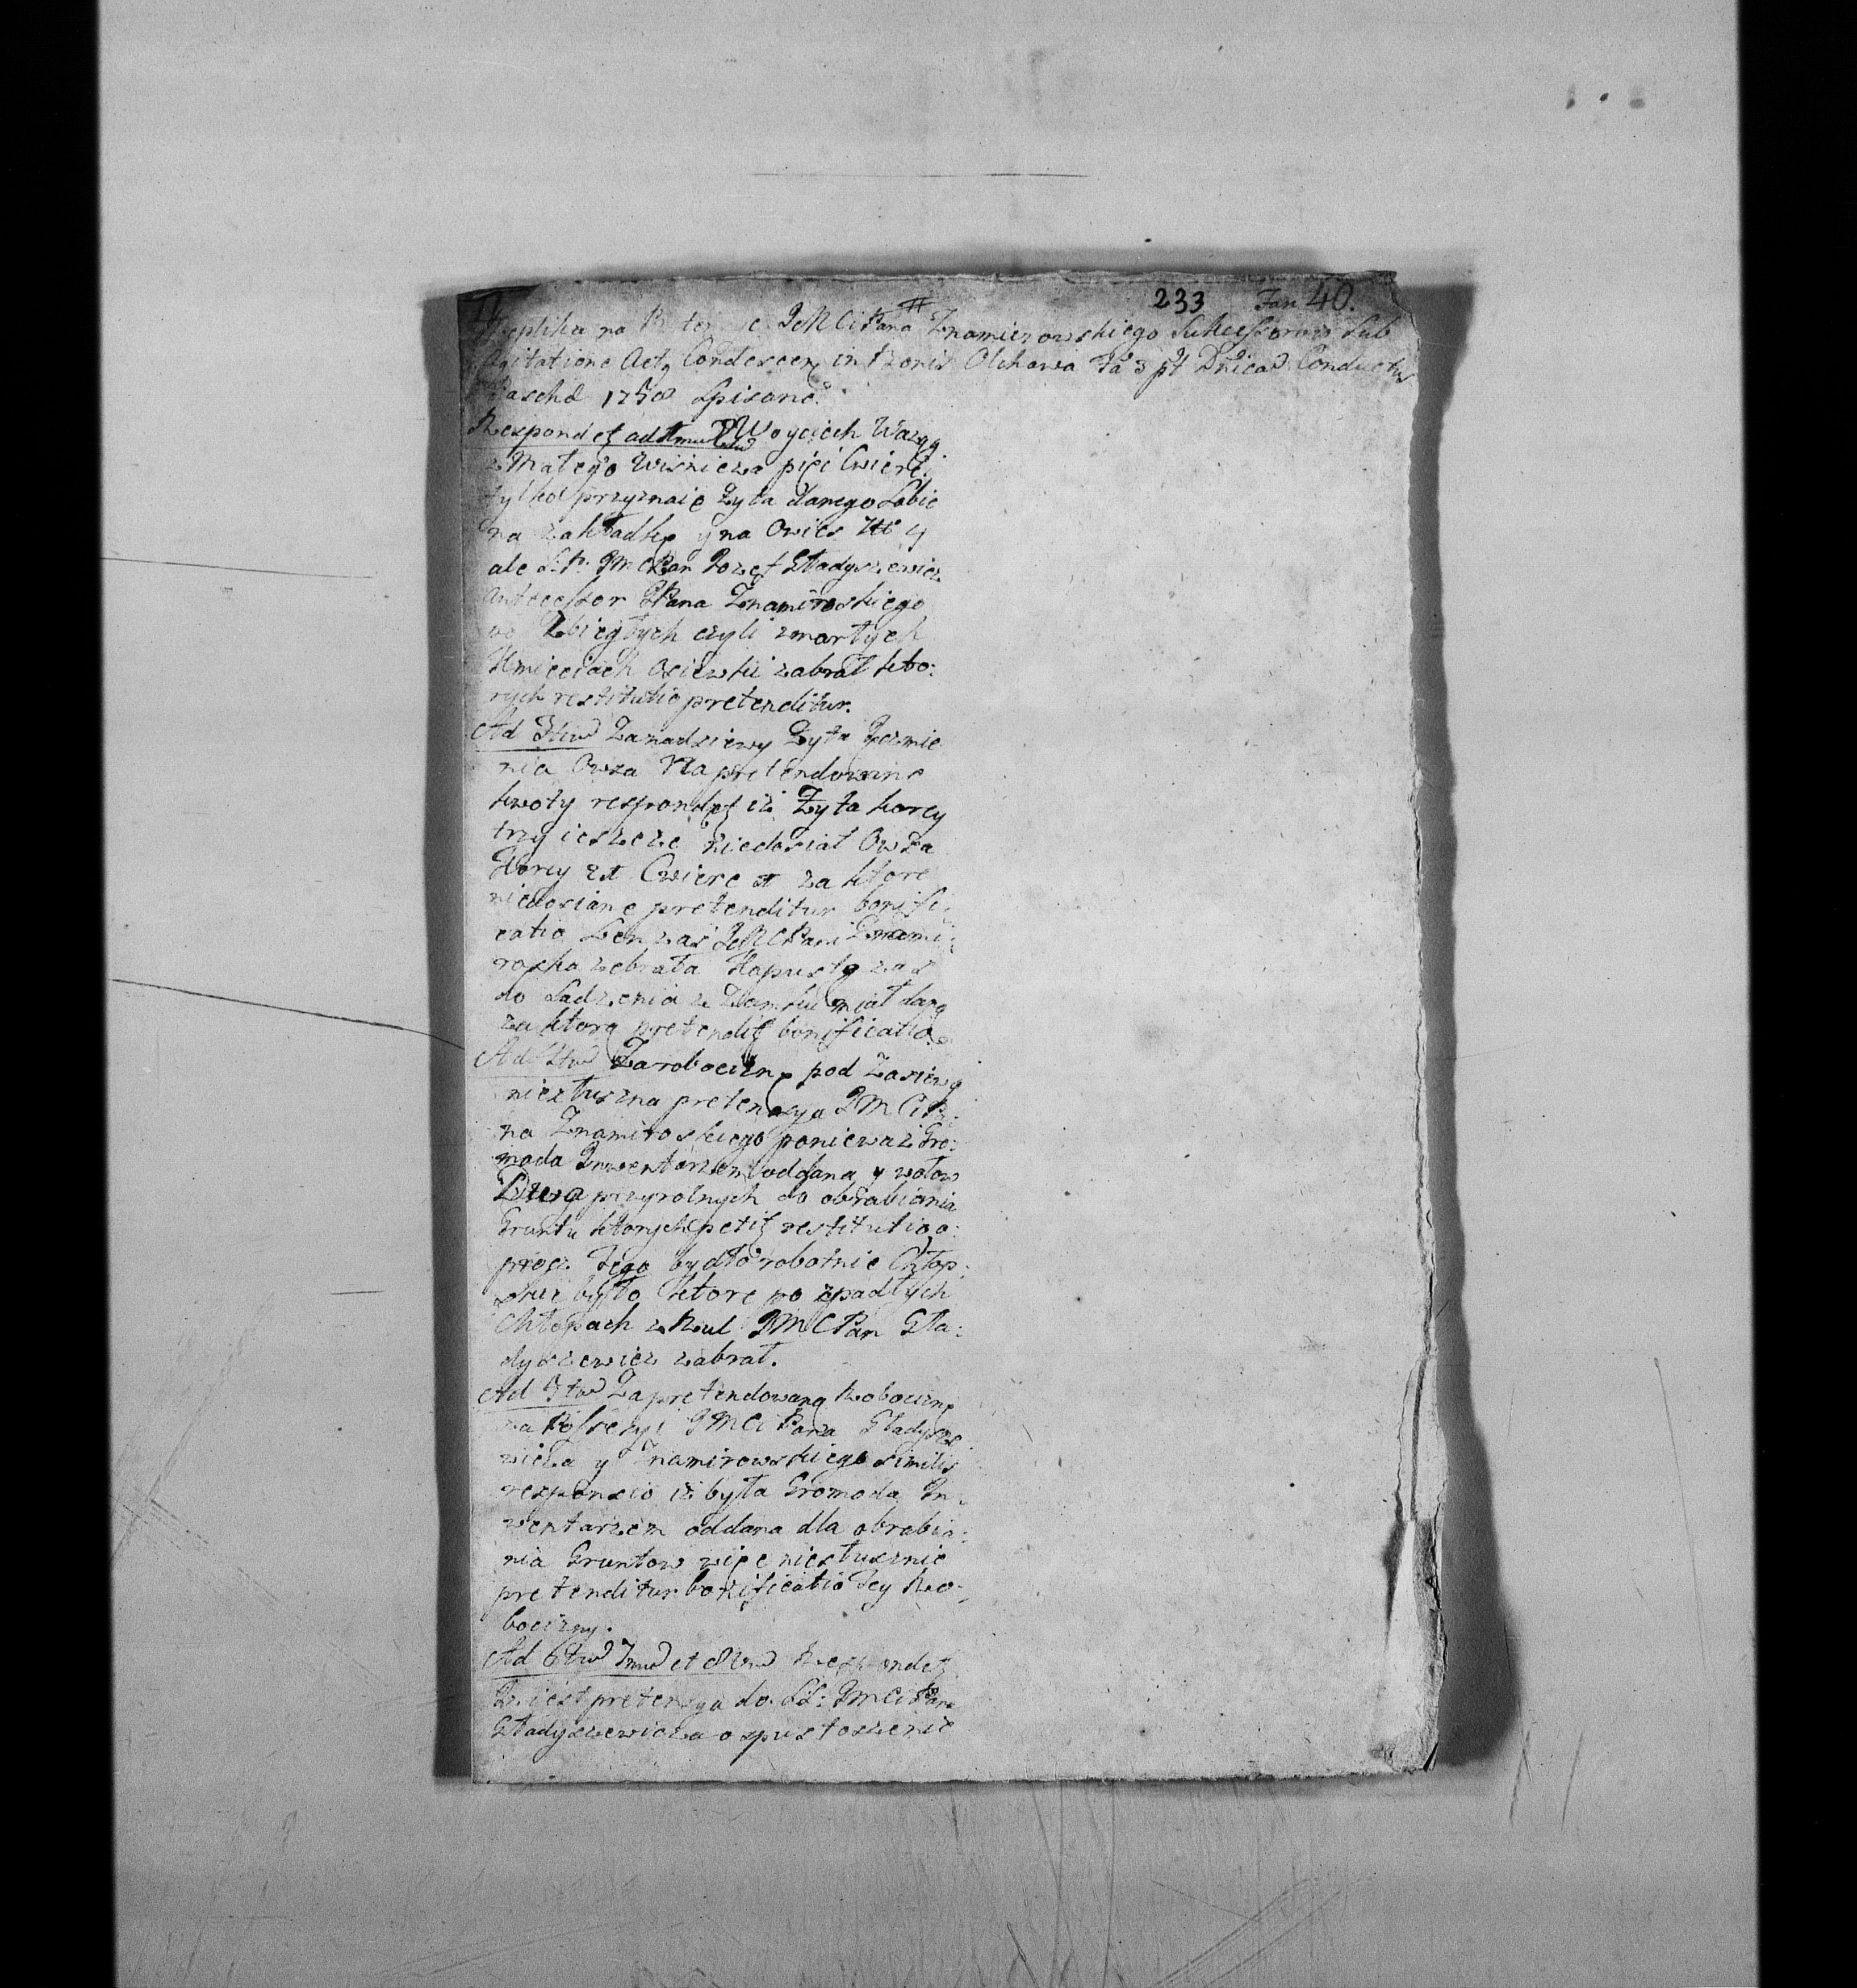 233 Fan 40.
Replika na JeMCi Pana Znamierowskiego Sukcessorow Sub
Agitatione Condescen in bonis Olchawa Fa 3 pt Dnicam Conductus
Paschæ 1758 Spisane.
Respondet ad Woyciech
z Małego Wiśnicza pięć Cwierci
tylko przyznaie Zyta danego Sobie
na zakładkę y na Owies 4
ale S. P. JMCPan Jozef Gładyszewicz
Antecessor JPana Znamiroskiego
po Zbiegłych czyli zmarłych
Kmieciach Osiewki zabrał kto:
rych restitutio pretenditur.
Ad 3tium Za nadsiewy Zyta Jęczmie
nia Owsa pretendowane
kwoty respondet iż Zyta korcy
trzy ieszcze niedosiał Owsa
Korcy Cwierc za ktore
niedosiane pretenditur bonifi:
catio Len zaś JeMCPani Znami:
roska zebrała Kapustę zaś
do Sadzenia z Zamku miał daną
za ktorą pretendit bonificatio.
Ad Za robociznę pod Zasiewy
niesłuszna pretensya JMCiPa:
na Znamiroskiego ponieważ Gro:
mada Inwentarzem oddana y wołow
Dwa przyrolnych do obrabiania
Gruntu ktorych petit restitutio o:
procz Tego bydło robotnie Chłop:
skie było ktore po spadłych
Chłopach z Rul JMCPan Gła:
dyszewicz zabrał.
Ad Za pretendowaną Robociznę
za Possesyi JMCi Pana Gładysze
wicza y Znamirowskiego similis
responsio iż była Gromada In:
wentarzem oddana dla obrabia:
nia Gruntow więc niesłusznie
pretenditur bonificatio Tey Ro:
bocizny.
Ad 6tum 7mum et 8vum Respondet
Iż iest pretensya do SS: JMCi Pana
Gładyszewicza o spustoszenie